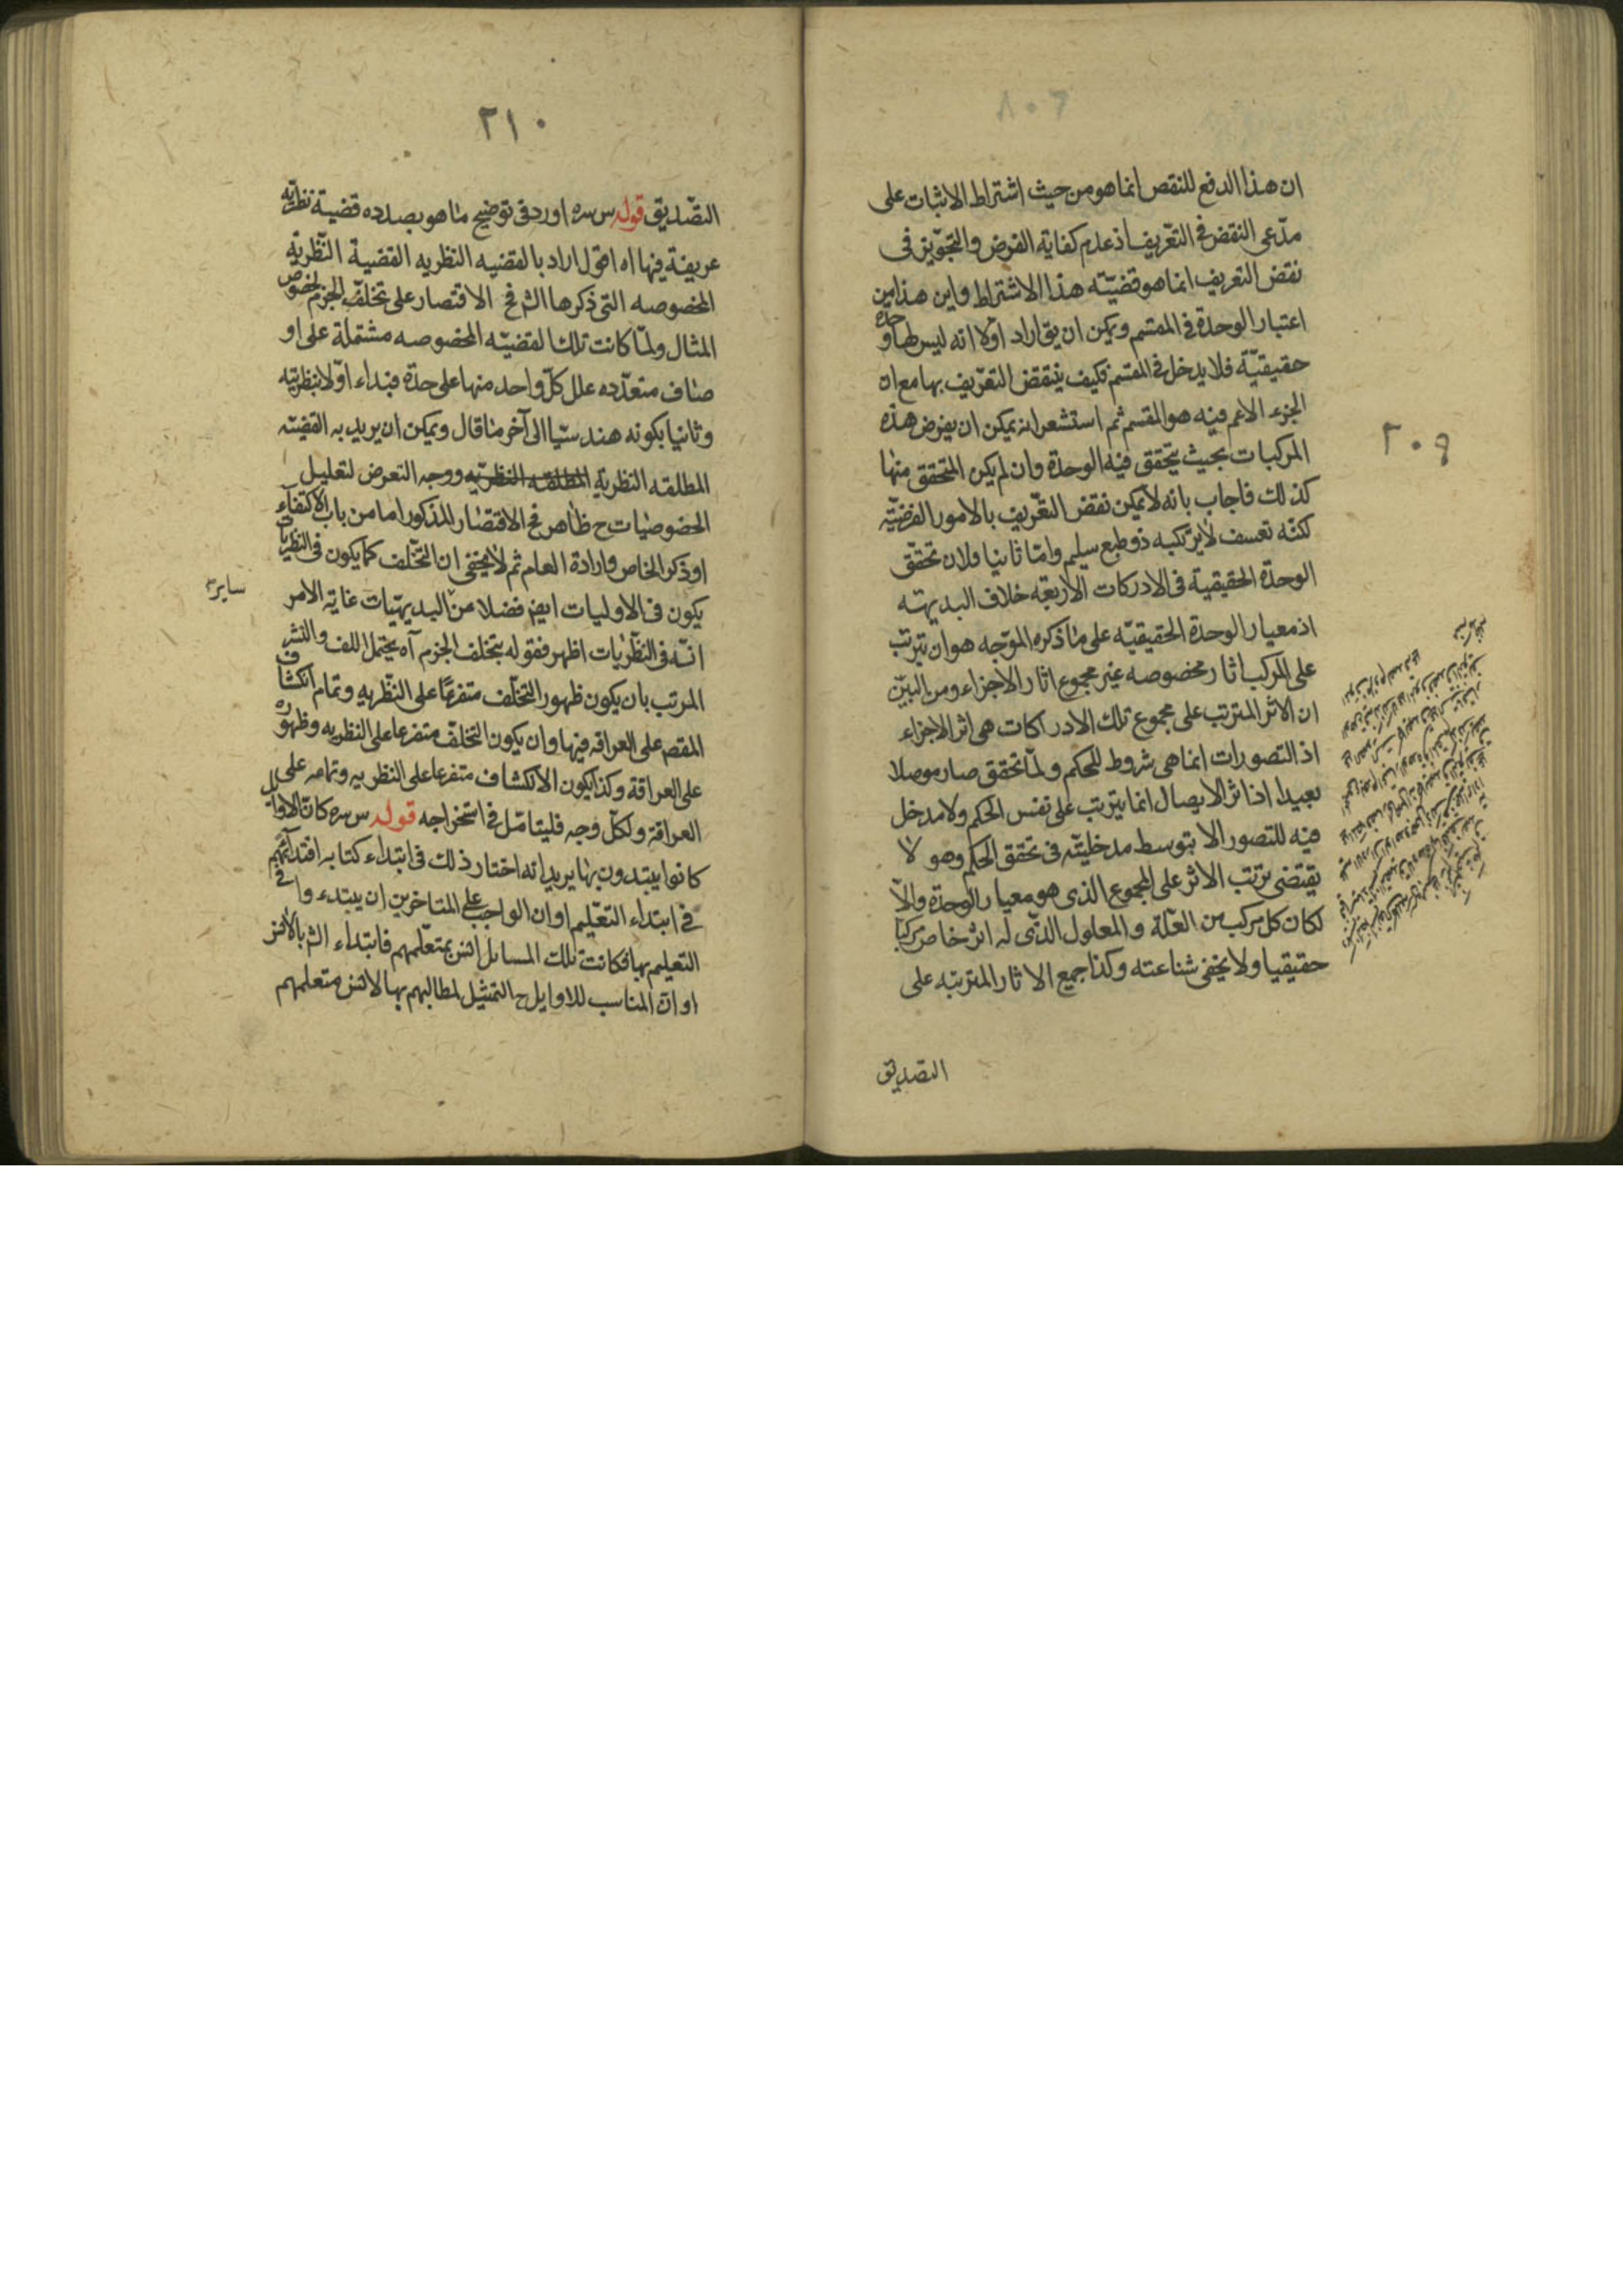 ان هذا الدفع للنقص انما هو من حيث اشتراط الاثبات على
مدّعى النقض فى التعريف اذ عدم كفاية الفرض والتجويز فى
نقض التعريف انما هو قضيّته هذا الاشتراط واين هذا من
اعتبار الوحدة فى المقسم ويمكن ان يق اراد اولا انه ليس لها وحدة
حقيقيّة فلا يدخل فى المقسم فكيف ينتقض التعريف بها مع ان
الجزء الاعم فيه هو المقسم ثم استشعر انه يمكن ان يفرض هذه
المركبات بحيث يتحقق فيه الوحدة وان لم يكن المتحقق منها
كذلك فاجاب بانه لا يمكن نقض التعريف بالامور الفرضيّه
لكنّه تعسف لا يرتكبه ذو طبع سليم وامّا ثانيا فلان تحقّق
الوحدة الحقيقية فى الادركات الأربعه خلاف البديهه
اذ معيار الوحدة الحقيقيّه على ما ذكره الموّجه هو ان يترتب
على المركب اثار مخصوصه غير مجموع اثار الاجزاء ومن البيّن
ان الاثر المترتب على مجموع تلك الادراكات هى اثر الاجزاء
اذ التصورات انما هى شروط للحكم ولمّا تحقق صار موصلا
بعيدا اذ اثر الايصال انما يترتب على نفس الحكم ولا مدخل
فيه للتصور الا بتوسط مدخليّته فى تحقق الحكم وهو لا
يقتضى ترتب الاثر على المجموع الذى هو معيار الوحدة والّا
لكان كل مركب من العلّة والمعلول الذّى له اثر خاص مركبا
حقيقيا ولا يخفى شناعته وكذا جميع الاثار المترتبه على
التصديق
٢٠٩
٢١٠
التصّديق قوله س سره اورد فى توضيح ما هو بصدده قضية نظريّه
عريقة فيها اه اقول اراد بالقضيه النظريه القضية النّظريّة
المخصوصه التى ذكرها الش فح الاقتصار على تخلّف الجزم لخصوص
المثال ولمّا كانت تلك القضيّه المخصوصه مشتملة على او
صاف متعدّده علل كلّ واحد منها على حدّة فبداء اوّلا بنظريّته
وثانيا بكونه هندسيّا الى آخر ما قال ويمكن ان يريد به القضيّه
المطلقه النظرية المطلقه النظريّه ووجه التعرض لتعليل
الخصوصيّات ح ظاهر فح الاقتصار المذكور اما من باب الاكتفاء
او ذكر الخاص وارادة العام ثم لا يخفى ان التخّلف كما يكون فى النظريات
يكون فى الاوليات ايض فضلا عن البديهيّات غاية الامر
سايرء
انّه فى النظّريات اظهر فقوله بتخلف الجزم آه يحتمل اللف والنشر
المرتب بان يكون ظهور التخلّف متفرعًا على النظّريه وتمام انكشاف
المقص على العراقه فيها وان يكون التخلف متفرعا على النظريه وظهوره
على العراقة وكذا يكون الانكشاف متفرعا على النظريه وتمامه على
العراقة ولكلّ وجه فليتامّل فى استخراجه قوله س سره كان الاوائل
كانوا يبتدون بها يريد انه اختار ذلك فى ابتداء كتابه اقتدآئهم
فى ابتداء التعّليم او ان الواجب على المتاخرين ان يبتدءوا فى
التعليم بها فكانت تلك المسائل انس بمتعّلمهم فابتداء الش بالأنس
او ان المناسب للاوايل ح التمثيل لمطالبهم بها لا لانس متعلمهم